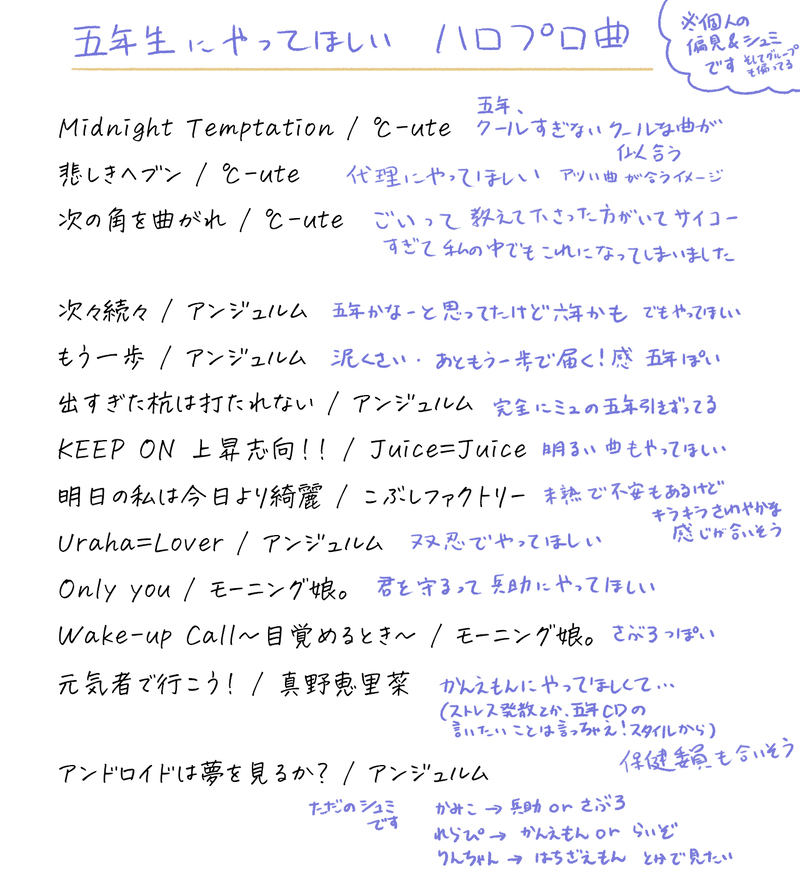 五年生にやってほしい ハロプロ曲
※個人の
偏見&シュミ
です そしてグループ
も偏ってる
五年、
Midnight Temptation / ℃-ute クールすぎないクールな曲が
似合う
悲しきヘブン / ℃-ute 代理にやってほしい アツい曲が合うイメージ
次の角を曲がれ / ℃-ute ごいって教えて下さった方がいてサイコー
すぎて私の中でもこれになってしまいました
次々続々 / アンジュルム 五年かなーと思ってたけど六年かも でもやってほしい
もう一歩 / アンジュルム 泥くさい・あともう一歩で届く!感 五年ぽい
出すぎた杭は打たれない / アンジュルム 完全にミュの五年引きずってる
KEEP ON 上昇志向!! / Juice=Juice 明るい曲もやってほしい
明日の私は今日より綺麗 / こぶしファクトリー 未熟で不安もあるけど
キラキラさわやかな
感じが合いそう
Uraha=Lover / アンジュルム 双忍でやってほしい
Only you / モーニング娘。 君を守るって兵助にやってほしい
Wake-up Call〜目覚めるとき〜 / モーニング娘。 さぶろっぽい
元気者で行こう! / 真野恵里菜 かんえもんにやってほしくて…
(ストレス発散とか、五年CDの
言いたいことは言っちゃえ!スタイルから)
保健委員も合いそう
アンドロイドは夢を見るか? / アンジュルム
ただのシュミ
です
かみこ→兵助 or さぶろ
れらぴ→かんえもん or らいぞ
りんちゃん→はちざえもん とかで見たい